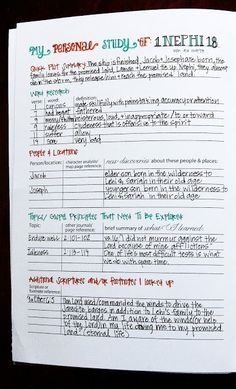 MY PERSONAL STUDY OF: 1 NEPHI 18
Quick Plot Summary: The ship is finished, Jacob & Joseph are born, the
family leaves for the promised land, Laman & Lemuel tie up Nephi, they almost
die in the storm, they release him & reach the promised land.
Word Research
verse word definition
1 curious made skillfully with painstaking accuracy or attention
7 had begat fathered
9 loud, & inappropriate / to or toward
9 rudeness crudeness that is offensive to the spirit
17 suffer allow
14 sore very bad
People & Locations
Person/location: character analysis/ map journal reference page: new discoveries about these people & places:
Jacob elder son born in the wilderness to Lehi & Sariah in their old age
Joseph younger son, born in the wilderness to Lehi & Sariah in their old age
Topics/ Gospel Principles That Need To Be Explored
Topic other journals/ page reference: brief summary of what I learned:
Endure well 2:101-102 vs. 16 "I did not murmur against the Lord because of mine afflictions"
Idleness 2:113-114 One of life's most difficult tests is what we do with spare time.
Additional Scriptures and/or Footnotes I looked up
Scripture or footnote reference
The Lord used/commanded the winds to drive the
Jaredite barges in addition to Lehi's family to the
promised land. Am I aware of the winds/or help
of the Lord in my life driving me to my promised
land? (eternal life)